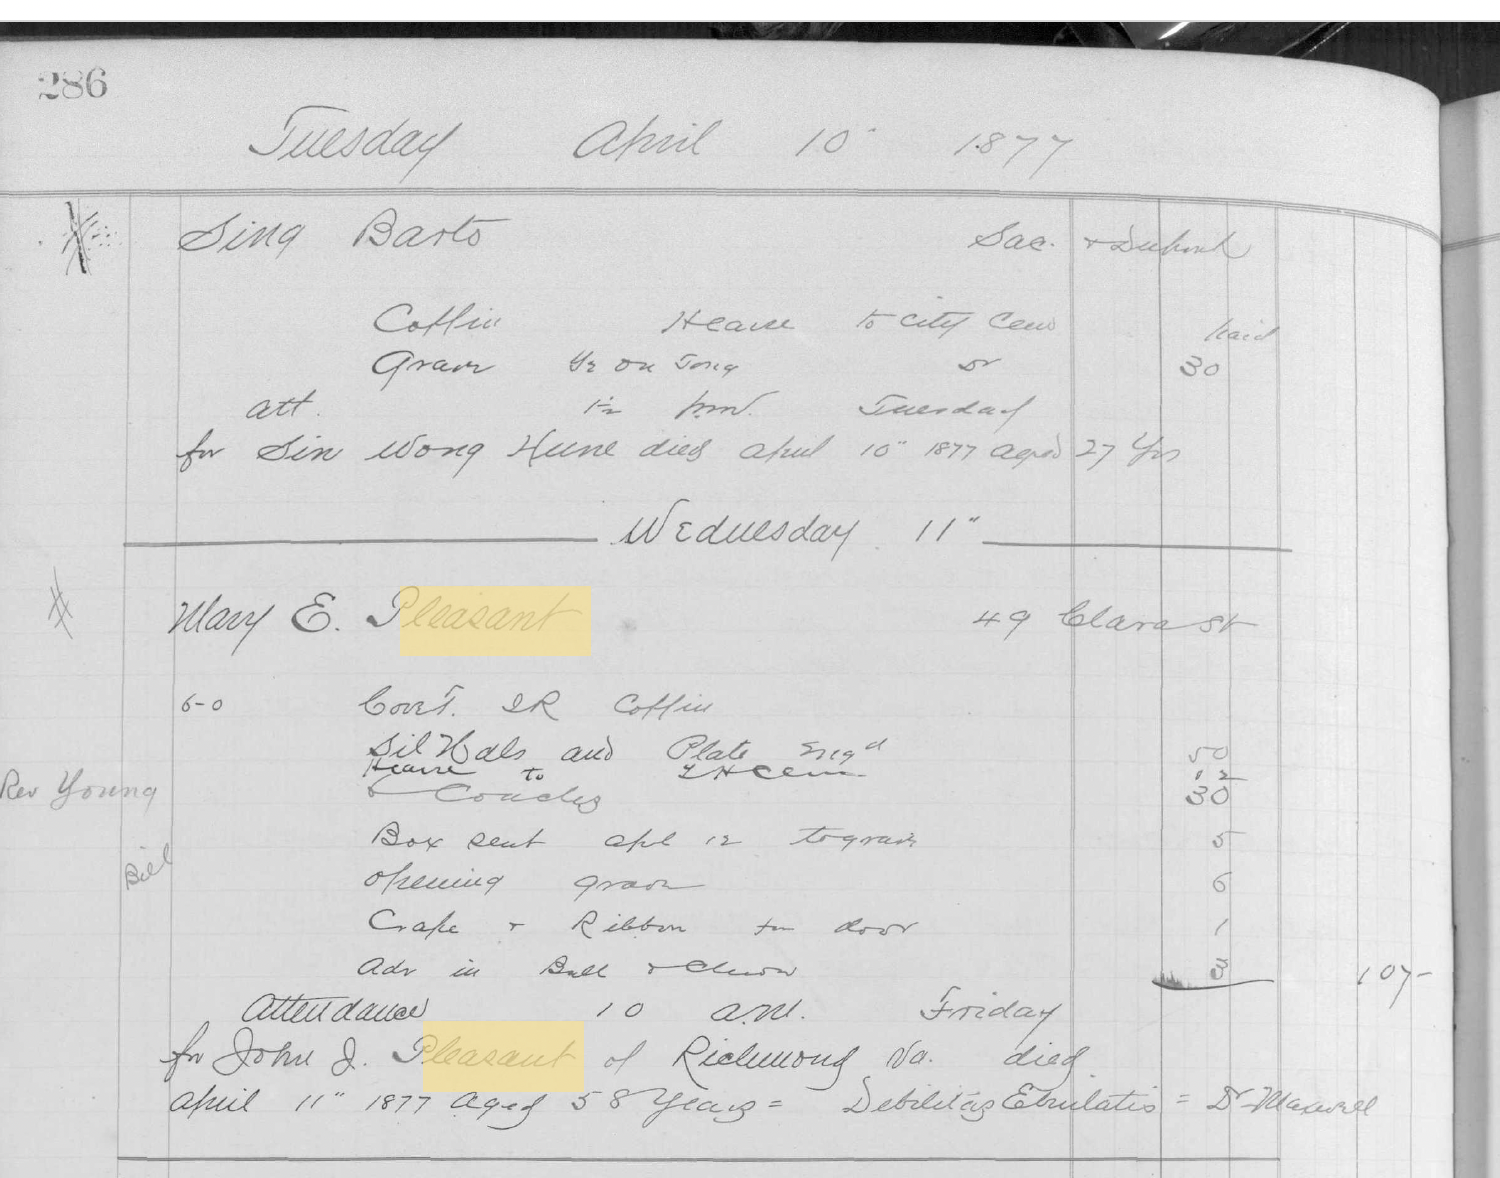 286
Tuesday April 10" 1877
Sing Barto Sac. + Dupont
Coffin Hearse to City Cem paid
Grave Yr on Tong Dr 30
att. 1½ P.M. Tuesday
for Sin Wong Hune died April 10" 1877 aged 27 Yrs
Wednesday 11"
Mary E. Pleasant 49 Clara St
6-0 Covt. Coffin
Sil Hdls and Plate Engd 50
Hearse to Cem 12
Coaches 30
Rev Young
Box sent Apl 12 to grave 5
Bill
opening grave 6
Crape + Ribbon for door 1
Adv in Bull + Chron 3 107-
Attendance 10 a.m. Friday
for John J. Pleasant of Richmond Va. died
April 11" 1877 aged 58 Years = Debilitas = Dr Maxwell